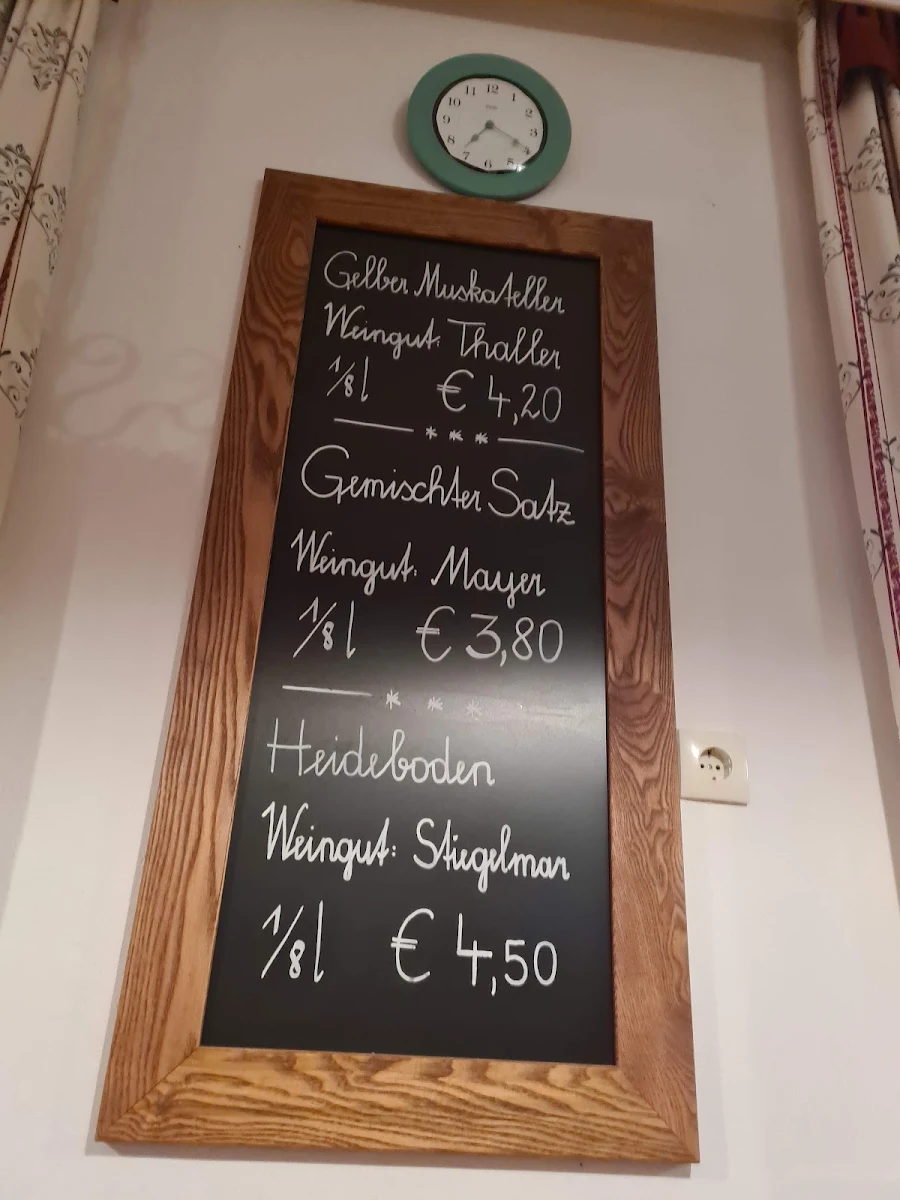 12
1
2
3
4
5
6
7
8
9
10
11
Gelber Muskateller
Weingut: Thaller
1/8 l € 4,20
* * *
Gemischter Satz
Weingut: Mayer
1/8 l € 3,80
* * *
Heideboden
Weingut: Stiegelmar
1/8 l € 4,50